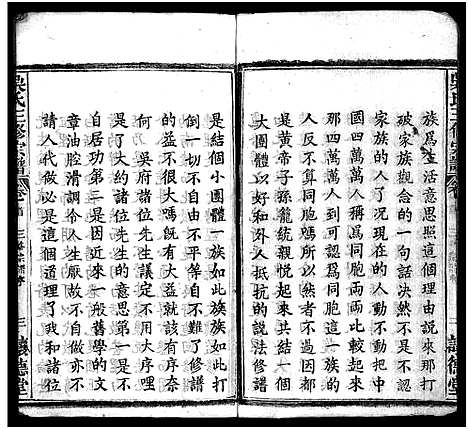 吳氏三修宗譜
族爲生活意思照這個理由說來那打
破家族觀念的一句話決然不是不要
家族的人了况現在的人動說要愛中
國四萬萬人稱爲同胞兩字四萬萬人
那四萬萬人到可認爲同胞這一族的
人反不算同胞嗎所以然者不過說都
是黃帝子孫籠統親悅起來共結一個
大團體大家好抵抗外人的說法修譜
是結個小團體一族如此族族如此打
倒一切不自由平等自不難了修譜
的益不很大嗎旣有大益就該有序奈
何 吳府諸位先生議定不用大序哩
是了大約諸位先生的意思第一是不
自居功第二是因近來一般舊學的文
章油腔滑調令人生厭故不自做亦不
請人代做必是這個道理了我和諸位
吳氏三修宗譜
三 讓德堂